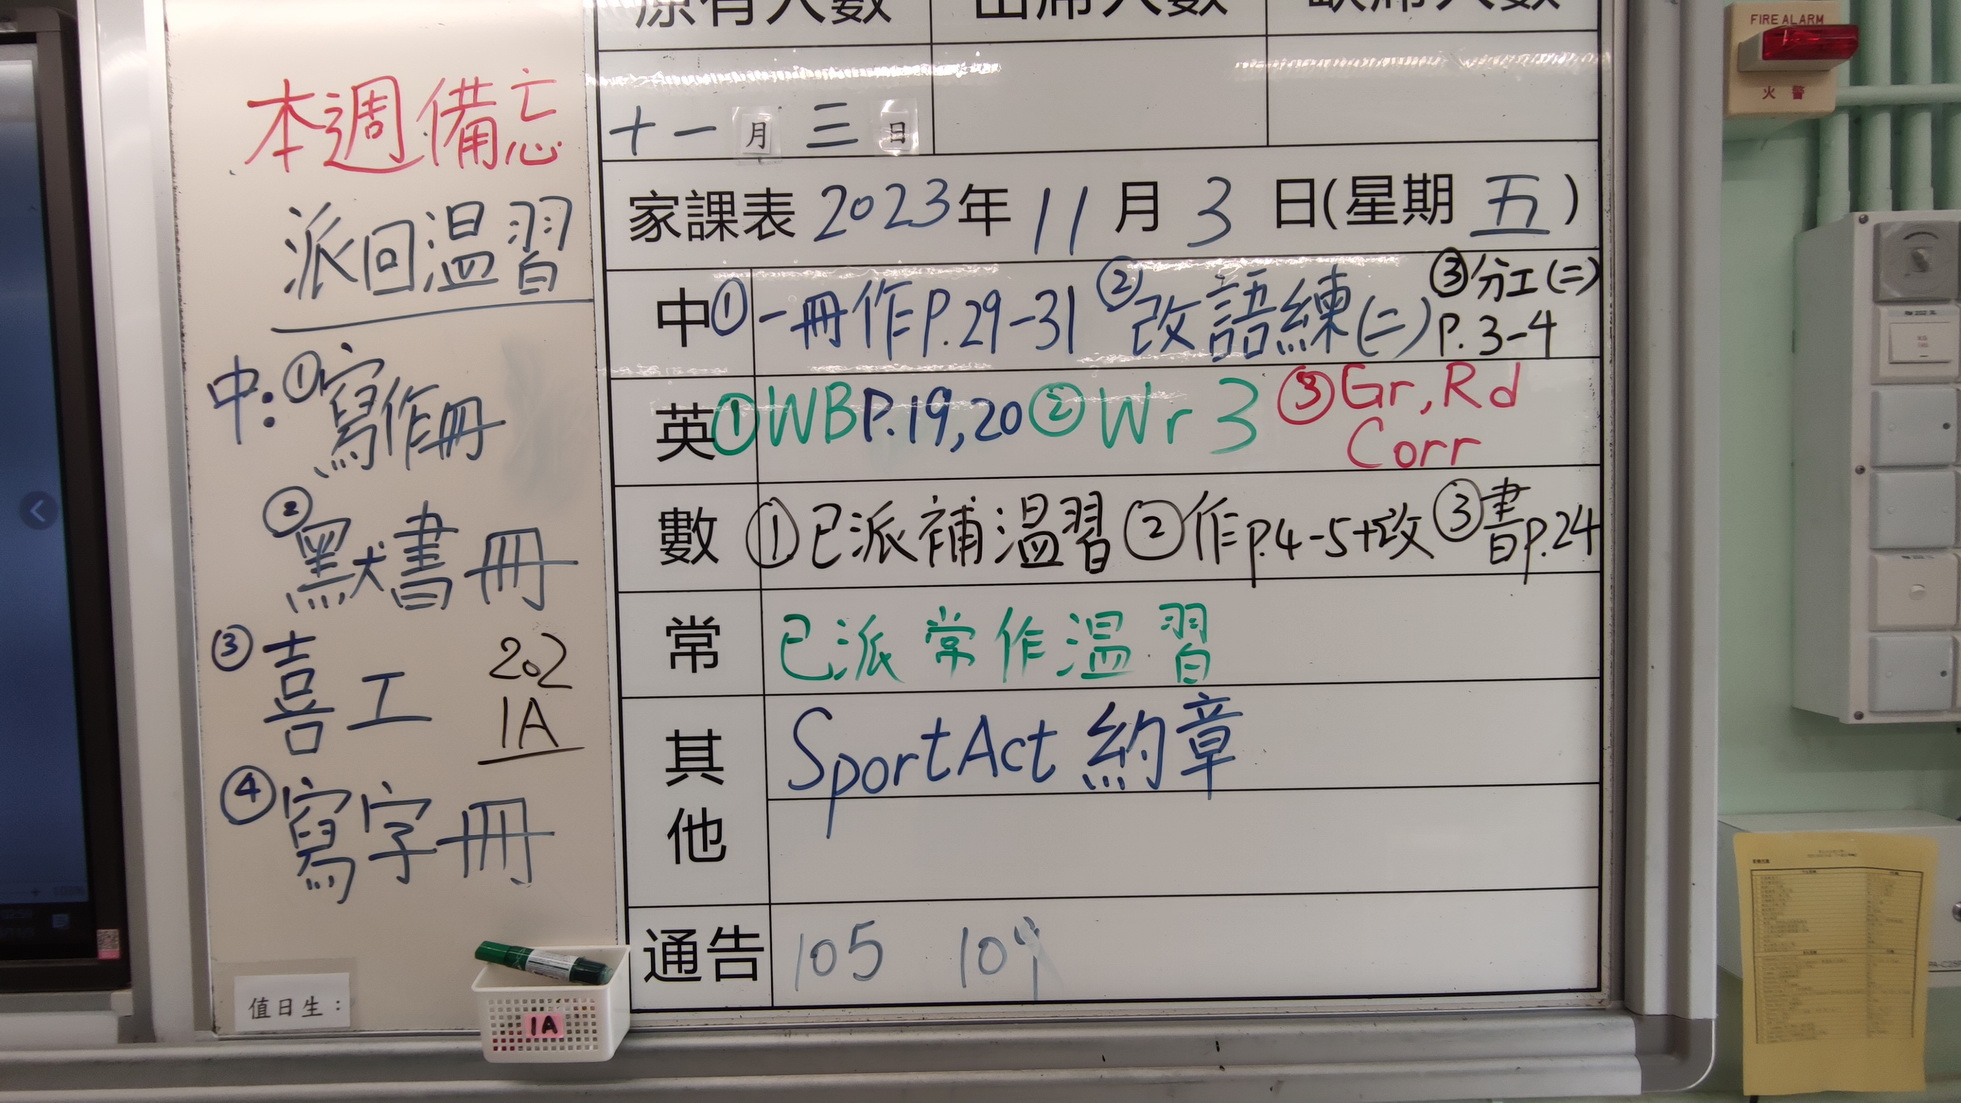 本週備忘
派回溫習
中:①寫作冊
②默書冊
③喜工
202
1A
④寫字冊
值日生:
1A
原有人數 出席人數 缺席人數
十一月三日
家課表 2023年 11月 3日(星期五)
中 ①一冊作P.29-31 ②改語練(二) ③分工(二) P.3-4
英 ①WBP.19,20 ②Wr 3 ③Gr,Rd Corr
數 ①已派補溫習 ②作p.4-5+改 ③書p.24
常 已派常作溫習
其他 SportAct 約章
通告 105 109
FIRE ALARM
火警